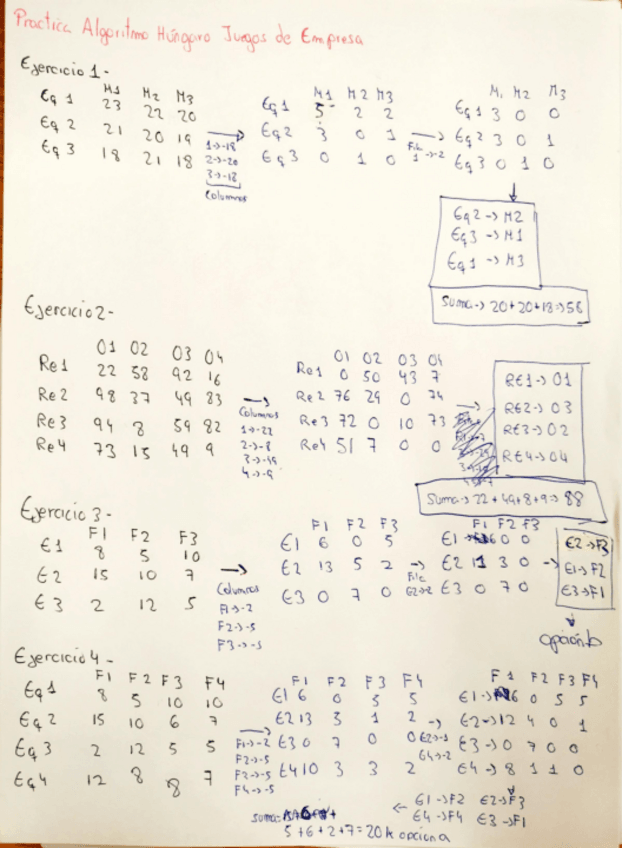 Practica Algoritmo Húngaro Juegos de Empresa
Ejercicio 1-
M1 M2 M3
Eq 1 23 22 20
Eq 2 21 20 19
Eq 3 18 21 18
1->-18
2->-20
3->-18
Columnas
M1 M2 M3
Eq1 5 2 2
Eq2 3 0 1
Eq3 0 1 0
Fila
1->-2
M1 M2 M3
Eq1 3 0 0
Eq2 3 0 1
Eq3 0 1 0
Eq2 -> M2
Eq3 -> M1
Eq1 -> M3
Suma-> 20+20+18->58
Ejercicio 2-
O1 O2 O3 O4
Re1 22 58 92 16
Re2 98 37 49 83
Re3 94 8 59 82
Re4 73 15 49 9
Columnas
1->-22
2->-8
3->-49
4->-9
O1 O2 O3 O4
Re1 0 50 43 7
Re2 76 29 0 74
Re3 72 0 10 73
Re4 51 7 0 0
RE1-> O1
RE2-> O3
RE3-> O2
RE4-> O4
Suma-> 22+49+8+9-> 88
Ejercicio 3-
F1 F2 F3
E1 8 5 10
E2 15 10 7
E3 2 12 5
Columnas
F1->-2
F2->-5
F3->-5
F1 F2 F3
E1 6 0 5
E2 13 5 2
E3 0 7 0
Fila
E2->-2
F1 F2 F3
E1 6 0 0
E2 11 3 0
E3 0 7 0
E2->F3
E1->F2
E3->F1
opción b
Ejercicio 4-
F1 F2 F3 F4
Eq1 8 5 10 10
Eq2 15 10 6 7
Eq3 2 12 5 5
Eq4 12 8 8 7
F1->-2
F2->-5
F2->-5
F4->-5
F1 F2 F3 F4
E1 6 0 5 5
E2 13 3 1 2
E3 0 7 0 0
E4 10 3 3 2
E2->-1
E4->-2
F1 F2 F3 F4
E1-> 6 0 5 5
E2->12 4 0 1
E3->0 7 0 0
E4-> 8 1 1 0
E1->F2 E2->F3
E4->F4 E3->F1
suma:
5+6+2+7=20k opcion a